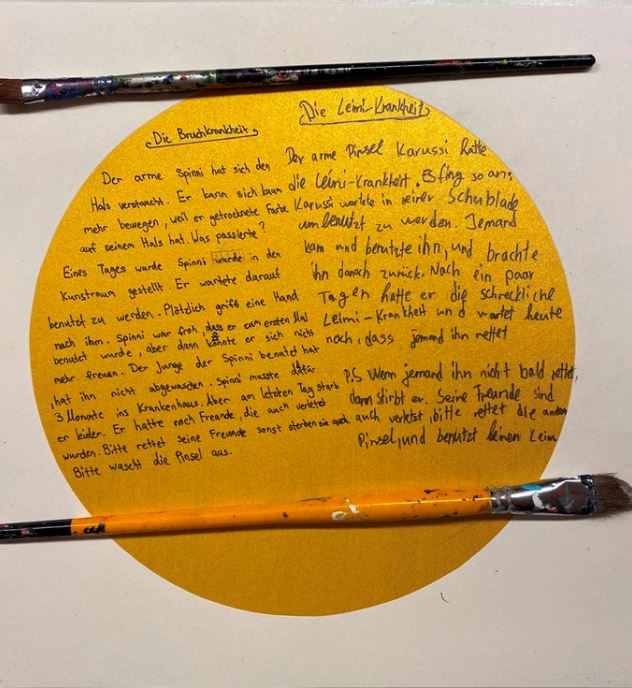 Die Bruchkrankheit
Der arme Spinni hat sich den
Hals verstaucht. Er kann sich kaum
mehr bewegen, weil er getrocknete Farbe
auf seinem Hals hat. Was passierte?
Eines Tages wurde Spinni wurde in den
Kunstraum gestellt. Er wartete darauf
benutzt zu werden. Plötzlich griff eine Hand
nach ihm. Spinni war froh, dass er zum ersten Mal
benutzt wurde, aber dann konnte er sich nicht
mehr freuen. Der Junge der Spinni benutzt hat
, hat ihn nicht abgewaschen. Spinni musste dafür
3 Monate ins Krankenhaus. Aber am letzten Tag starb
er leider. Er hatte noch Freunde, die auch verletzt
wurden. Bitte rettet seine Freunde sonst sterben sie auch
Bitte wascht die Pinsel aus.
Die Leimi-Krankheit
Der arme Pinsel Karussi hatte
die Leimi-Krankheit. Es fing so an:
Karussi wartete in seiner Schublade
um benutzt zu werden. Jemand
kam und benutzte ihn, und brachte
ihn danach zurück. Nach ein paar
Tagen hatte er die schreckliche
Leimi-Krankheit und wartet heute
noch, dass jemand ihn rettet
P.S Wenn jemand ihn nicht bald rettet,
dann stirbt er. Seine Freunde sind
auch verletzt, bitte rettet die anderen
Pinsel, und benutzt keinen Leim